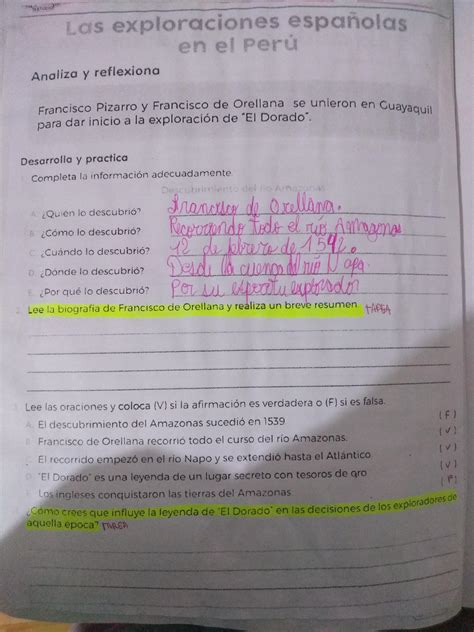 Las exploraciones españolas
en el Perú
Analiza y reflexiona
Francisco Pizarro y Francisco de Orellana se unieron en Guayaquil
para dar inicio a la exploración de "El Dorado".
Desarrolla y practica
1. Completa la información adecuadamente.
Descubrimiento del río Amazonas
A. ¿Quién lo descubrió? Francisco de Orellana.
B. ¿Cómo lo descubrió? Recorriendo todo el río Amazonas
C. ¿Cuándo lo descubrió? 12 de febrero de 1542.
D. ¿Dónde lo descubrió? Desde la cuenca del río Napa.
E. ¿Por qué lo descubrió? Por su espíritu explorador
2. Lee la biografía de Francisco de Orellana y realiza un breve resumen. TAREA
3. Lee las oraciones y coloca (V) si la afirmación es verdadera o (F) si es falsa.
A. El descubrimiento del Amazonas sucedió en 1539 (F)
B. Francisco de Orellana recorrió todo el curso del río Amazonas. (V)
C. El recorrido empezó en el río Napo y se extendió hasta el Atlántico (V)
D. "El Dorado" es una leyenda de un lugar secreto con tesoros de oro (V)
E. Los ingleses conquistaron las tierras del Amazonas (F)
¿Cómo crees que influye la leyenda de "El Dorado" en las decisiones de los exploradores de
aquella época? TAREA